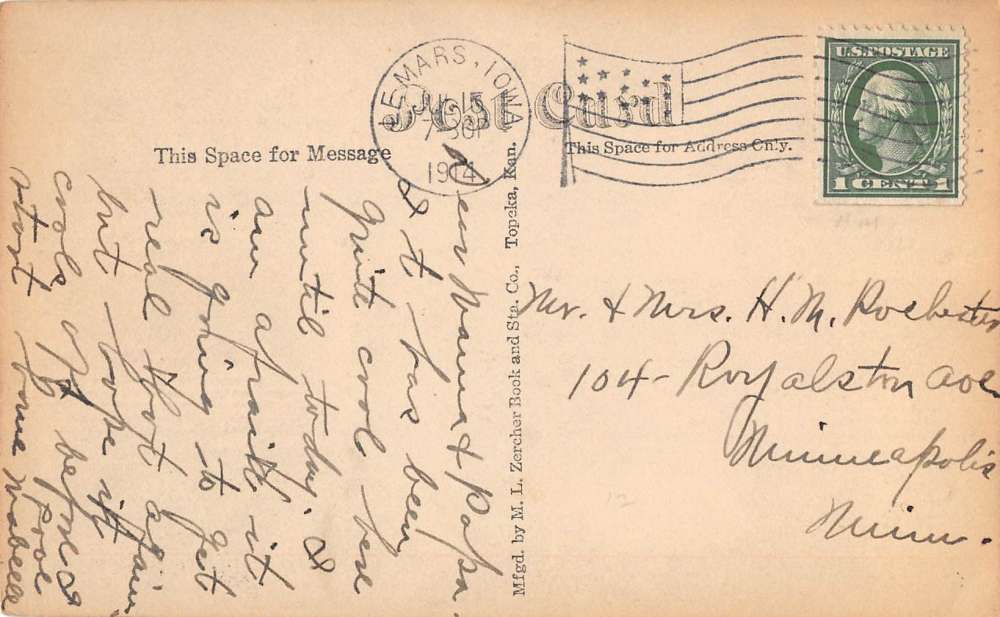 Post Card
This Space for Message
This Space for Address Only.
LE MARS, IOWA
JUL 15
7 30 P
1914
U.S. POSTAGE
1 CENT 1
Mfgd. by M. L. Zercher Book and Sta. Co., Topeka, Kan.
Dear Mama & Papa.
& it has been
quite cool here
until today. &
am afraid it
is going to get
real hot again
but hope it
cools off before
start home Mabelle
Mr. & Mrs. H. M. Rochester
104 - Royalston Ave
Minneapolis
Minn.